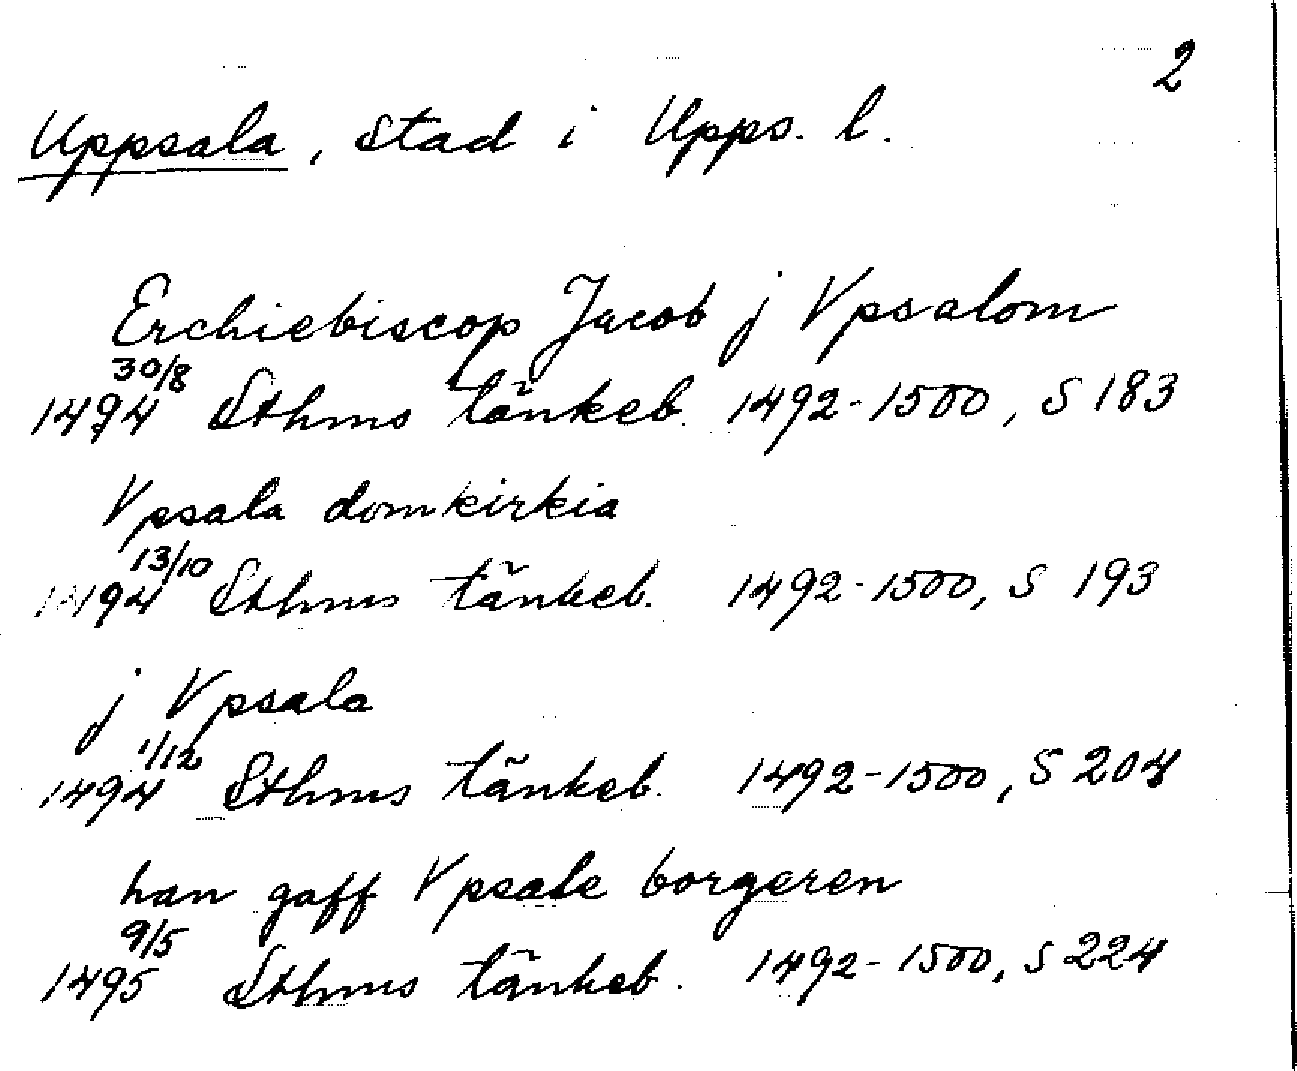 2
Uppsala, stad i Upps. l.
Erchiebiscop Jacob j Vpsalom
30/8
1494 Sthms tänkeb. 1492-1500, S 183
Vpsala domkirkia
13/10
1494 Sthms tänkeb. 1492-1500, S 193
j Vpsala
1/12
1494 Sthms tänkeb. 1492-1500, S 204
han gaff Vpsale borgeren
9/5
1495 Sthms tänkeb. 1492-1500, S 224